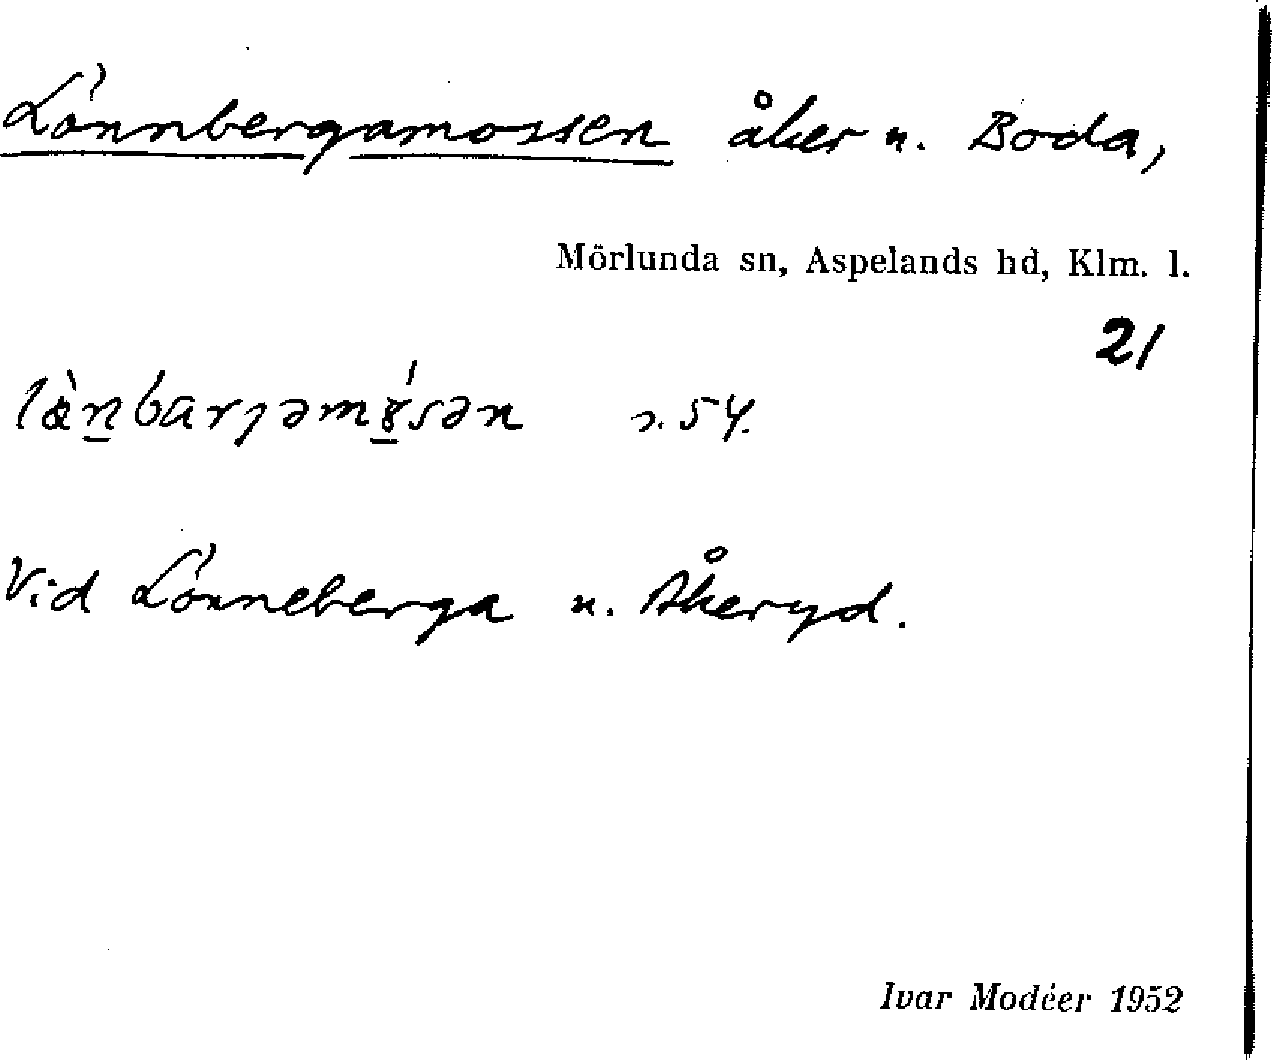 Lönnbergamossen åker u. Boda,
Mörlunda sn, Aspelands hd, Klm. l.
21
s. 54.
Vid Lönneberga u. Åkeryd.
Ivar Modéer 1952